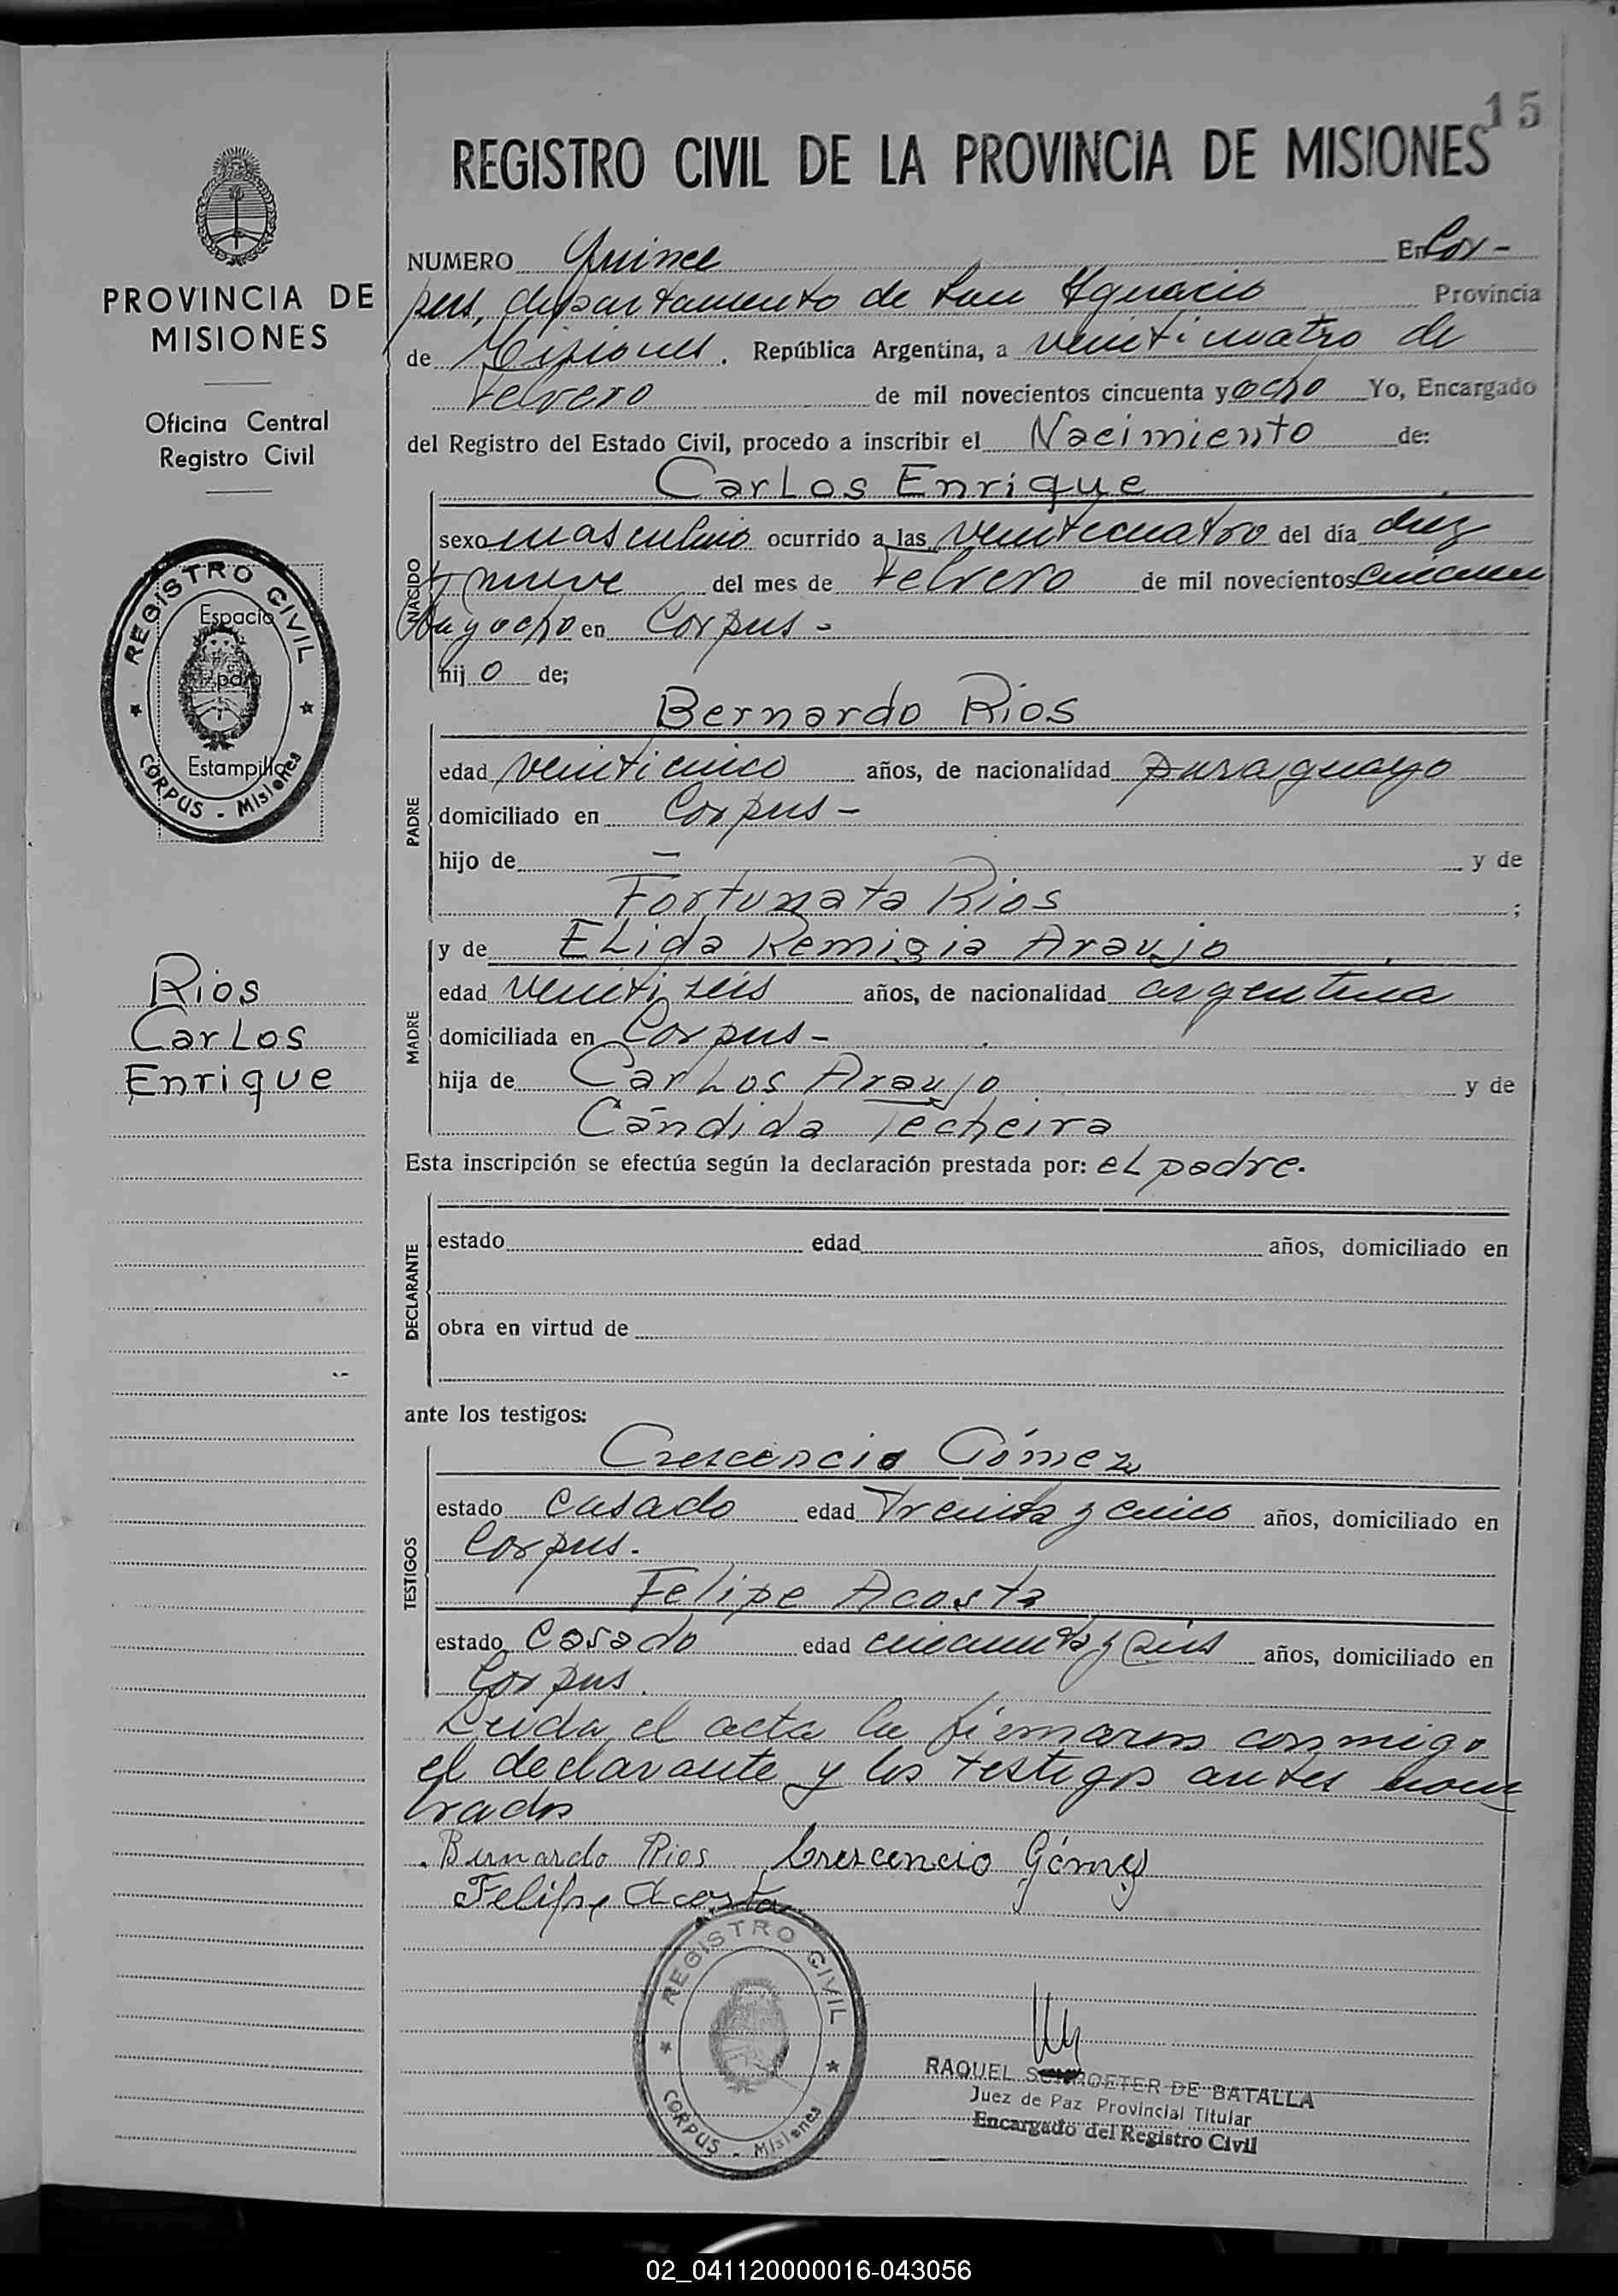 15
REGISTRO CIVIL DE LA PROVINCIA DE MISIONES
PROVINCIA DE
MISIONES
Oficina Central
Registro Civil
REGISTRO CIVIL
Espacio
para
Estampilla
CORPUS - Misiones
Rios
Carlos
Enrique
NUMERO Quince En Cor-
pus, departamento de San Ygnacio Provincia
de Misiones. República Argentina, a veinticuatro de
Febrero de mil novecientos cincuenta y ocho Yo, Encargado
del Registro del Estado Civil, procedo a inscribir el Nacimiento de:
Carlos Enrique
NACIDO
sexo masculino ocurrido a las veinticuatro del día diez
y nueve del mes de Febrero de mil novecientos cincuen
ta y ocho en Corpus-
hijo de;
Bernardo Rios
PADRE
edad veinticinco años, de nacionalidad paraguayo
domiciliado en Corpus-
hijo de - y de
Fortunata Rios ;
MADRE
y de Elida Remigia Araujo
edad veintiseis años, de nacionalidad argentina
domiciliada en Corpus-
hija de Carlos Araujo y de
Cándida Techeira
Esta inscripción se efectúa según la declaración prestada por: el padre.
DECLARANTE
estado edad años, domiciliado en
obra en virtud de
ante los testigos:
TESTIGOS
Crescencio Gómez
estado casado edad treinta y cinco años, domiciliado en
Corpus.
Felipe Acosta
estado casado edad cincuenta y seis años, domiciliado en
Corpus.
Leida el acta la firmaron conmigo
el declarante y los testigos antes nom
brados
Bernardo Rios Crescencio Gómez
Felipe Acosta
REGISTRO CIVIL
CORPUS - Misiones
RAQUEL SCHROETER DE BATALLA
Juez de Paz Provincial Titular
Encargado del Registro Civil
02_041120000016-043056